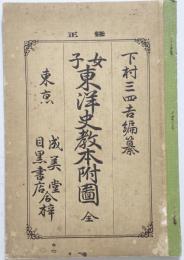 訂正
下村三四吉編纂
女子東洋史教本附圖 全
東京
成美堂
目黒書店 合梓